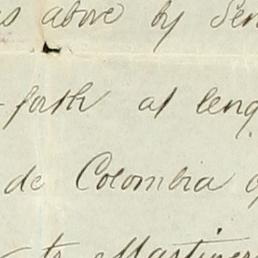 as above by Sen
forth at leng
de Colombia
to Martinez